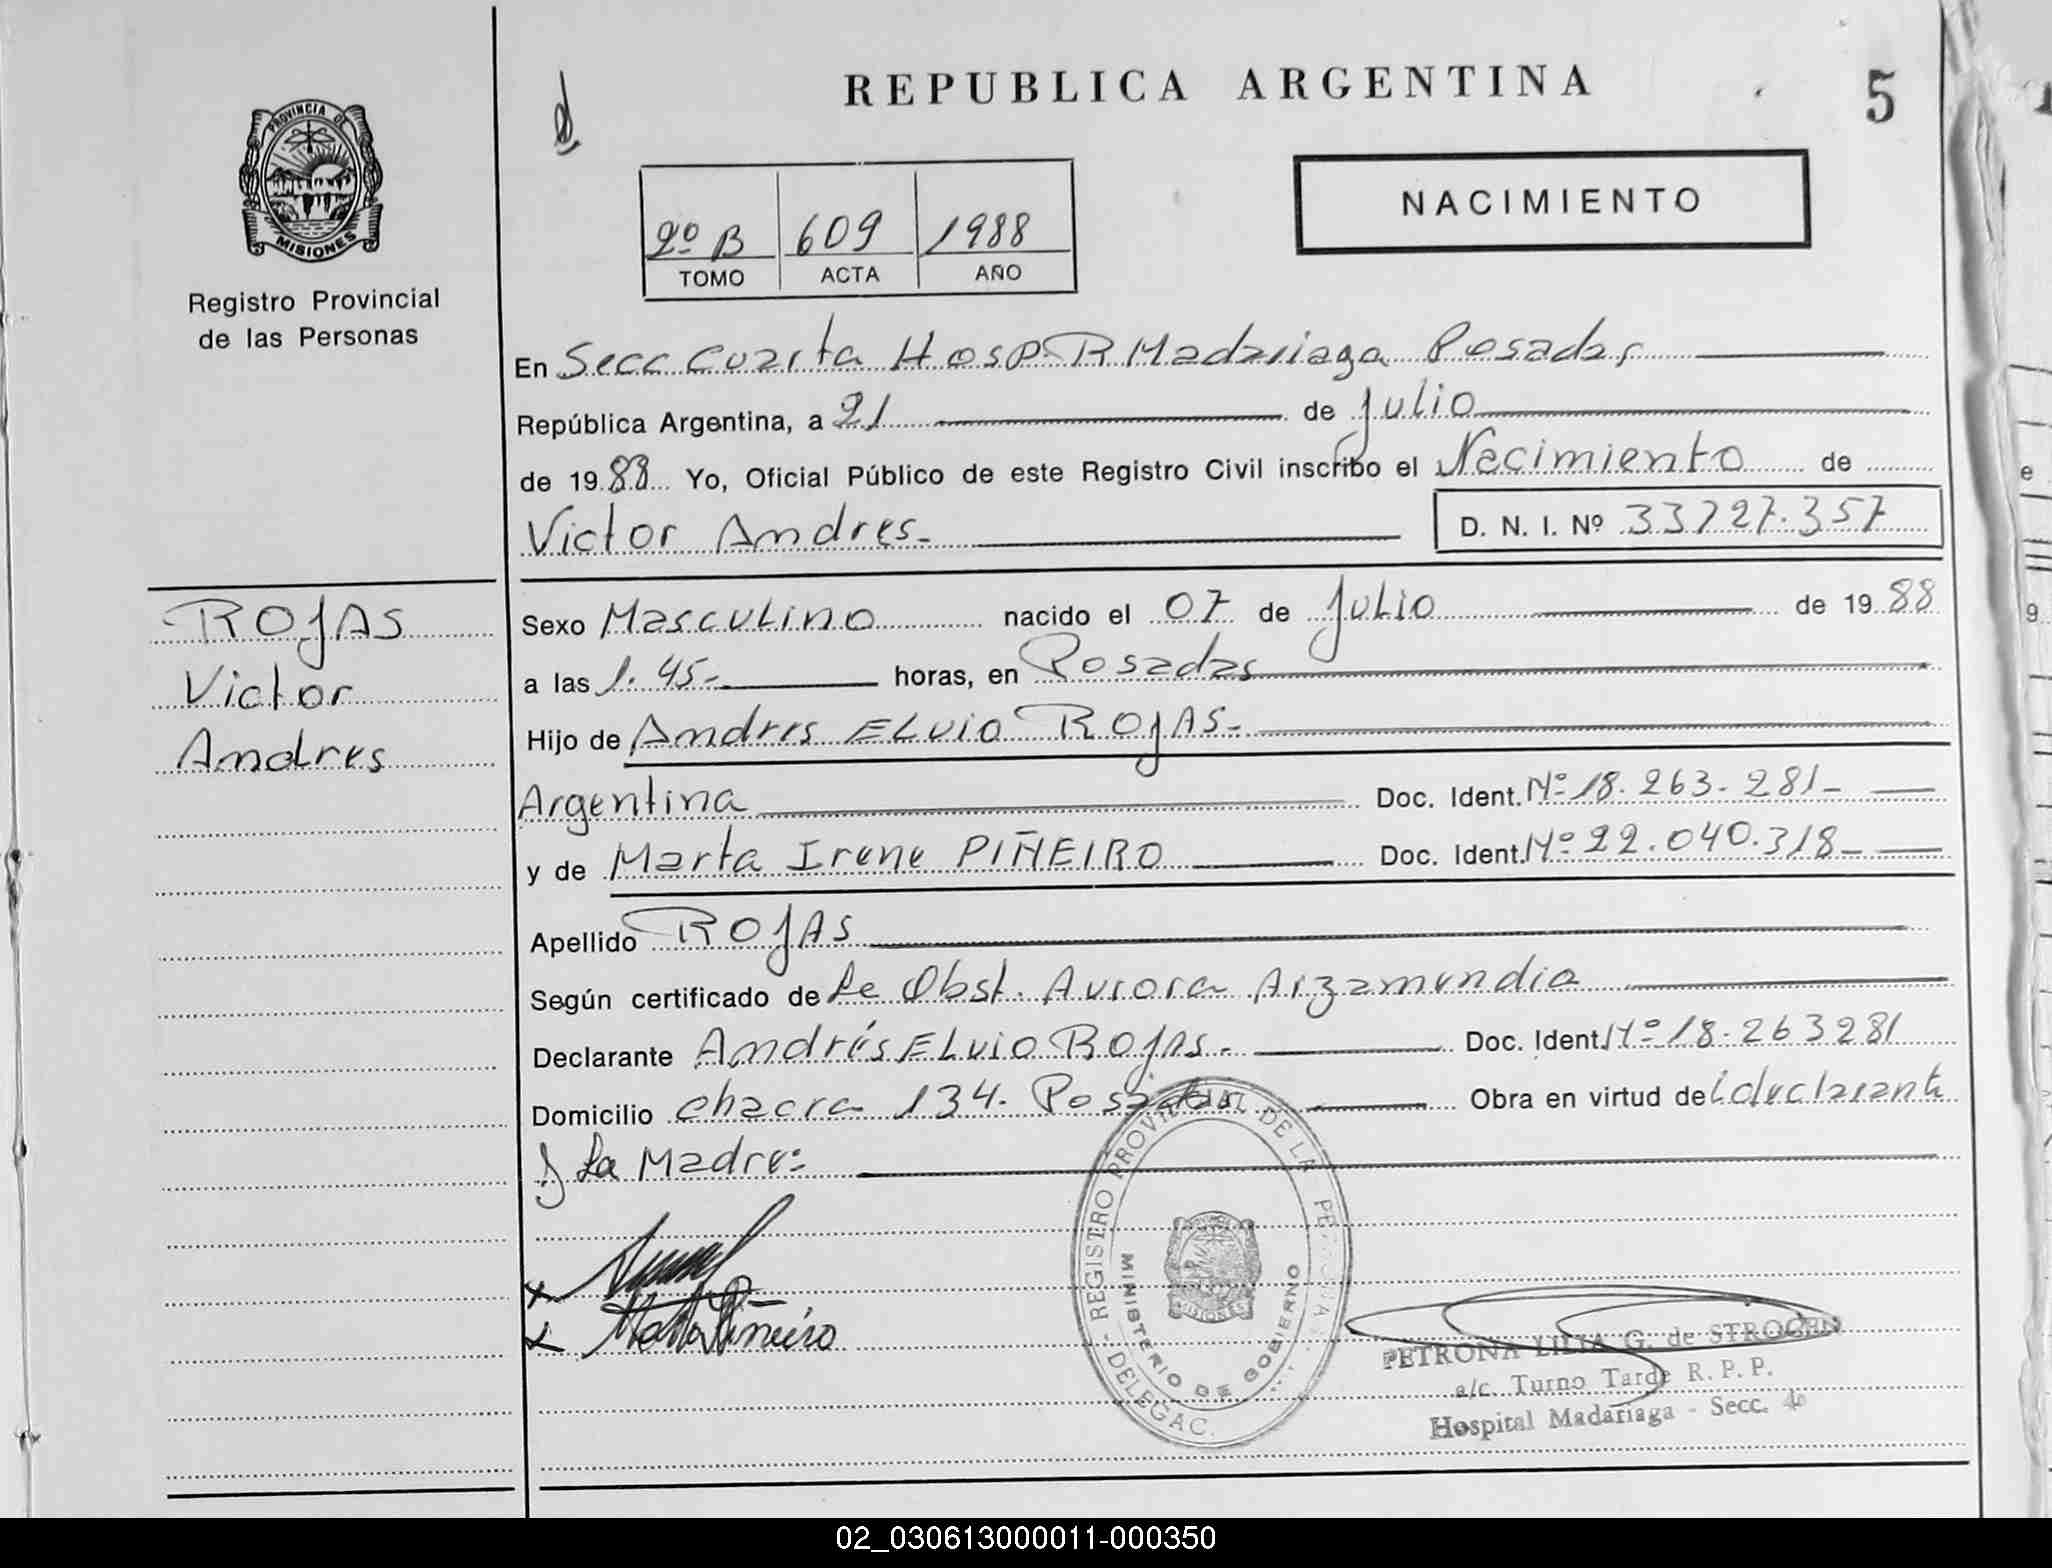 REPUBLICA ARGENTINA
5
PROVINCIA DE
MISIONES
Registro Provincial
de las Personas
NACIMIENTO
2º B 609 1988
TOMO ACTA AÑO
En Secc Cuarta Hosp. R Madariaga Posadas
República Argentina, a 21 de Julio
de 1988 Yo, Oficial Público de este Registro Civil inscribo el Nacimiento de
Victor Andres.- D. N. I. Nº 33727.357
ROJAS
Victor
Andres
Sexo Masculino nacido el 07 de Julio de 1988
a las 1.45- horas, en Posadas
Hijo de Andres ELvio ROJAS.-
Argentina Doc. Ident. Nº 18.263.281-
y de Marta Irene PIÑEIRO Doc. Ident. Nº 22.040.318-
Apellido ROJAS
Según certificado de La Obst. Aurora Arzamendia
Declarante Andrés ELvio Rojas.- Doc. Ident. Nº 18.263281
Domicilio chacra 134. Posadas Obra en virtud de L declarante
y La Madre:
x
x Marta Piñeiro
REGISTRO PROVINCIAL DE LA PERSONA
MINISTERIO DE GOBIERNO
MISIONES
DELEGAC.
PETRONA LILIA G. de STROGEN
a/c. Turno Tarde R. P. P.
Hospital Madariaga - Secc. 4º
02_030613000011-000350